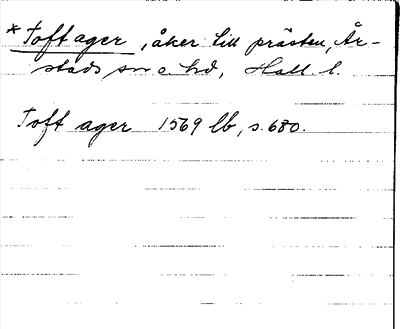 * Toftager, åker till prästen, År-
stads sn o hd, Hall l.
Toft ager 1569 lb, s. 680.